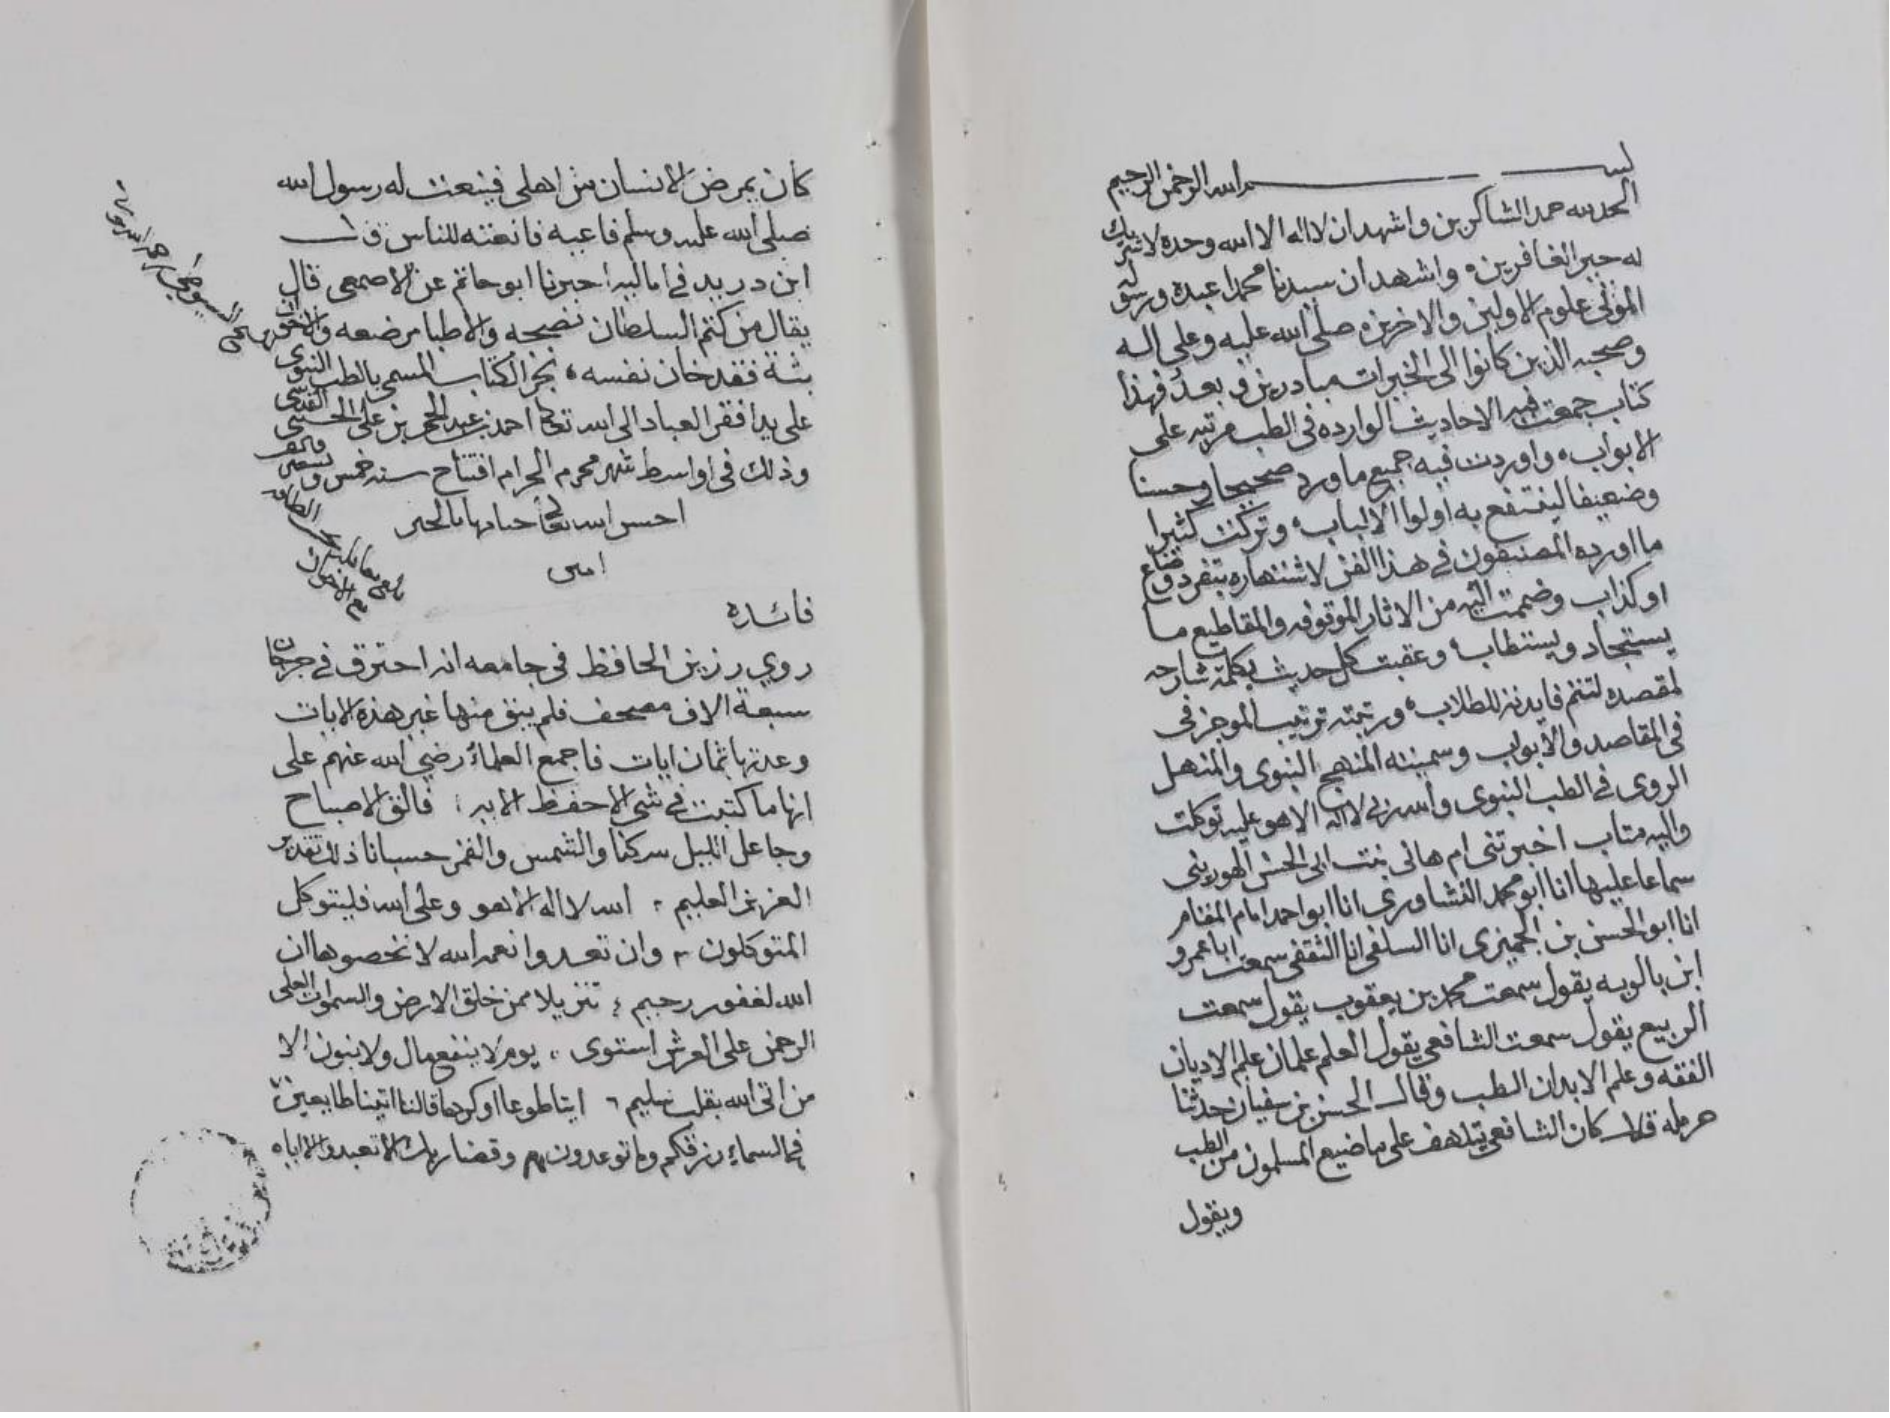 بسم الله الرحمن الرحيم
الحمد لله حمد الشاكرين واشهد ان لا اله الا الله وحده لا شريك
له خير الغافرين واشهد ان سيدنا محمدا عبده ورسوله
الموتى علوم الاولين والاخرين صلى الله عليه وعلى اله
وصحبه الذين كانوا الى الخيرات مبادرين وبعد فهذا
كتاب جمعت فيه الاحاديث الوارده في الطب مرتبه على
الابواب واوردت فيه جميع ما ورد صحيحا وحسنا
وضعيفا لينتفع به اولوا الالباب وتركت كثيرا
ما اورده المصنفون في هذا الفن لاشتهاره بتفرد وضاع
او كذاب وضممت اليه من الاثار الموقوفه والمقاطيع ما
يستجاد ويستطاب وعقبت كل حديث بكلمة شارحه
لمقصده لتتم فايدته للطلاب ورتبته ترتيب الموجز في
في المقاصد والابواب وسميته المنهج النبوى والمنهل
الروى في الطب النبوى والله ربي لا اله الا هو عليه توكلت
واليه متاب اخبرتني ام هانى بنت ابى الحسن الهورينى
سماعا عليها انا ابو محمد النشاورى انا ابو احمد امام المقام
انا ابو الحسن بن الجميزى انا السلفى انا الثقفى سمعت ابا عمرو
ابن بالويه يقول سمعت محمد بن يعقوب يقول سمعت
الربيع يقول سمعت الشافعي يقول العلم علمان علم الاديان
الفقه وعلم الابدان الطب وقال الحسن بن سفيان حدثنا
حرمله قال كان الشافعي يتلهف على ما ضيع المسلمون من الطب
ويقول
كان يمرض الانسان من اهلى فينعت له رسول الله
صلى الله عليه وسلم فاعيه فانعته للناس قال
ابن دريد في اماليه اخبرنا ابو حاتم عن الاصمعى قال
يقال من كتم السلطان نصيحه والاطبا مرضه والاخوان
بثه فقد خان نفسه نجز الكتاب المسمى بالطب النبوى
على يد افقر العباد الى الله تعالى احمد بن عبد الرحمن بن على الحسنى القدسى
وذلك في اواسط شهر محرم الحرام افتتاح سنه خمس وتسعين
احسن الله تعالى ختامها بالخير
امين
فائده
روي رزين الحافظ في جامعه انه احترق في جرجان
سبعة الاف مصحف فلم يبق منها غير هذه الايات
وعدتها ثمان ايات فاجمع العلماء رضي الله عنهم على
انها ما كتبت في شى الا حفظ فالق الاصباح
وجاعل الليل سكنا والشمس والقمر حسبانا ذلك تقدير
العزيز العليم الله لا اله الا هو وعلى الله فليتوكل
المتوكلون وان تعدوا نعمه الله لا تحصوها ان
الله لغفور رحيم تنزيلا ممن خلق الارض والسموات العلى
الرحمن على العرش استوى يوم لا ينفع مال ولا بنون الا
من اتى الله بقلب سليم ايتيا طوعا او كرها قالتا اتينا طايعين
في السماء رزقكم وما توعدون وقضا ربك الا تعبدوا الا اياه